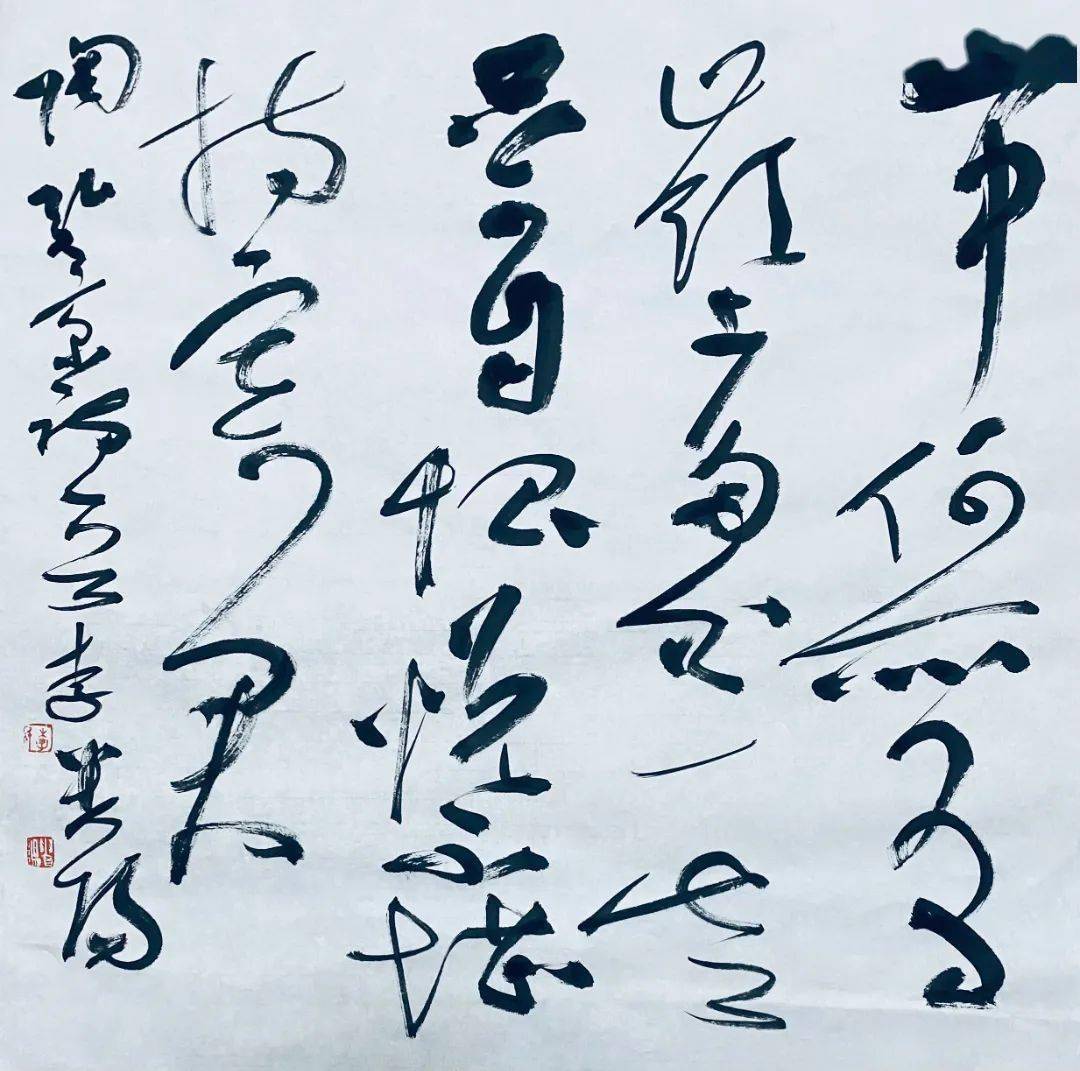 山中何所有
嶺上多白云
只可自怡悦不堪
持寄君
陶弘景詩李陽